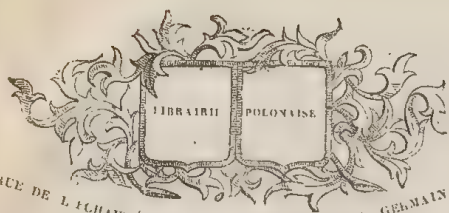 LIBRAIRIE POLONAISE
RUE DE L GERMAIN